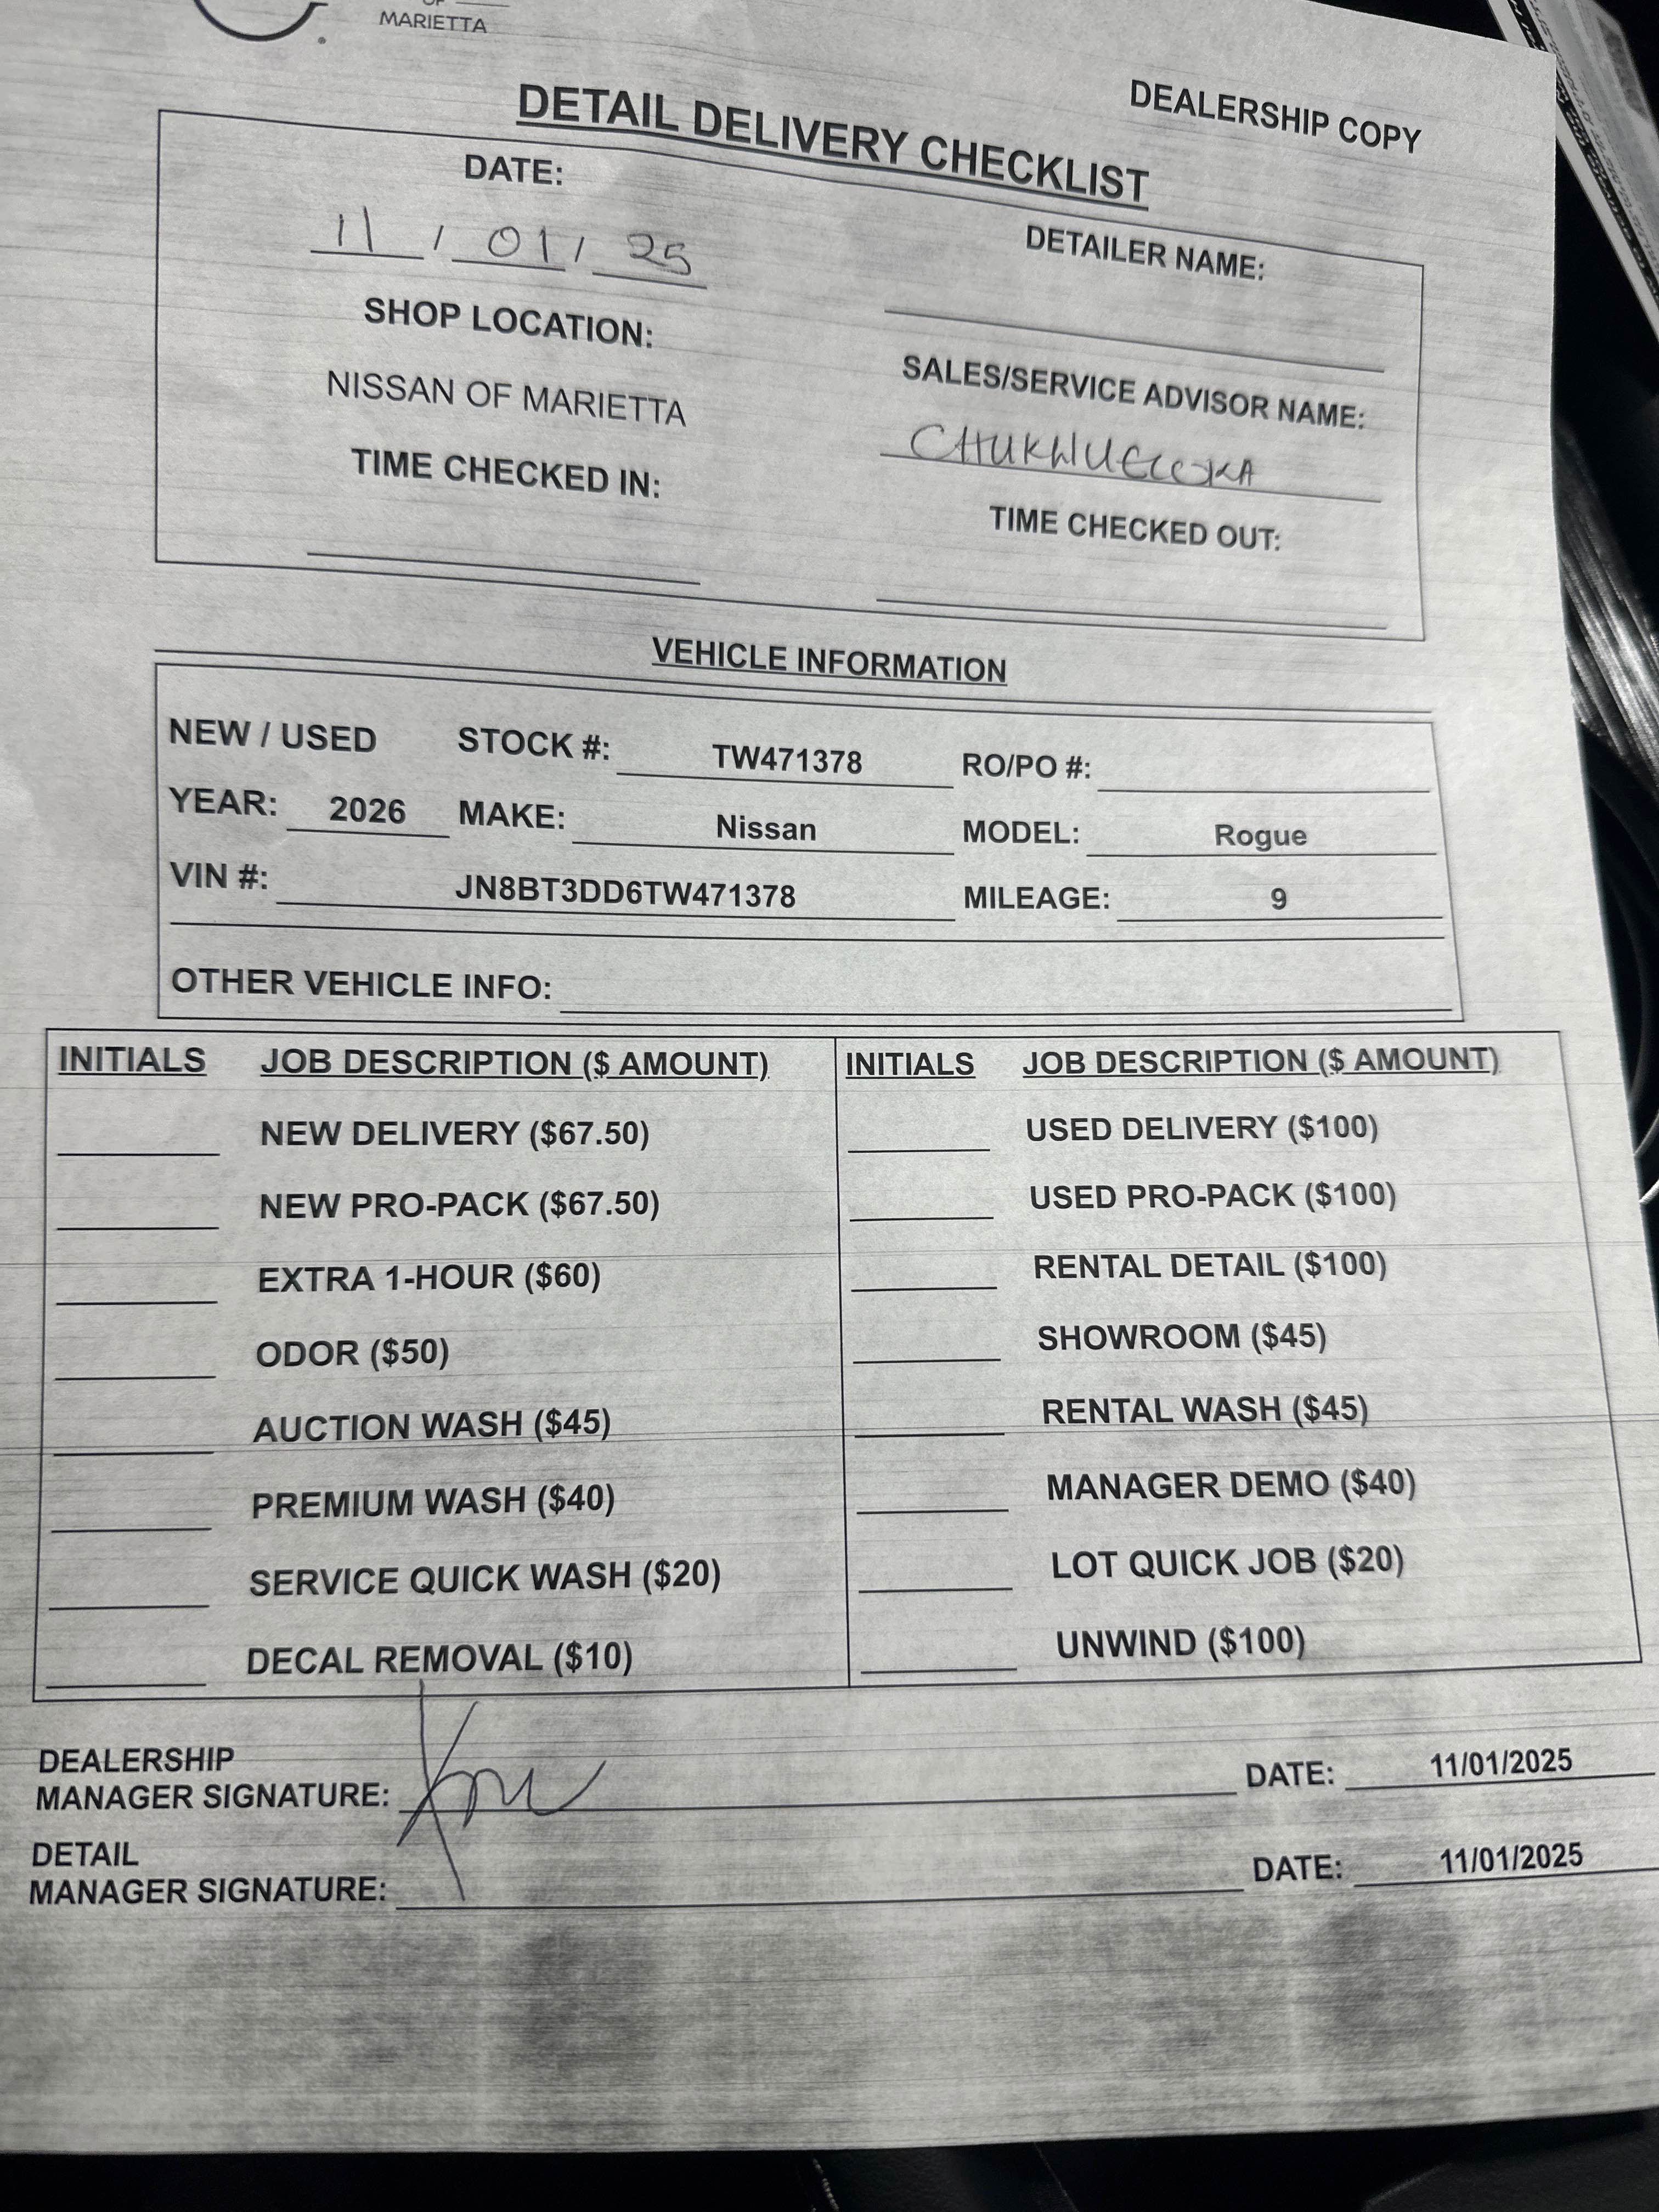 MARIETTA
DEALERSHIP COPY
DETAIL DELIVERY CHECKLIST
DATE:
11 / 01 / 25
DETAILER NAME:
SHOP LOCATION:
NISSAN OF MARIETTA
SALES/SERVICE ADVISOR NAME:
TIME CHECKED IN:
TIME CHECKED OUT:
VEHICLE INFORMATION
NEW / USED STOCK #: TW471378 RO/PO #:
YEAR: 2026 MAKE: Nissan MODEL: Rogue
VIN #: JN8BT3DD6TW471378 MILEAGE: 9
OTHER VEHICLE INFO:
INITIALS JOB DESCRIPTION ($ AMOUNT) INITIALS JOB DESCRIPTION ($ AMOUNT)
NEW DELIVERY ($67.50) USED DELIVERY ($100)
NEW PRO-PACK ($67.50) USED PRO-PACK ($100)
EXTRA 1-HOUR ($60) RENTAL DETAIL ($100)
ODOR ($50) SHOWROOM ($45)
AUCTION WASH ($45) RENTAL WASH ($45)
PREMIUM WASH ($40) MANAGER DEMO ($40)
SERVICE QUICK WASH ($20) LOT QUICK JOB ($20)
DECAL REMOVAL ($10) UNWIND ($100)
DEALERSHIP
MANAGER SIGNATURE: DATE: 11/01/2025
DETAIL
MANAGER SIGNATURE: DATE: 11/01/2025